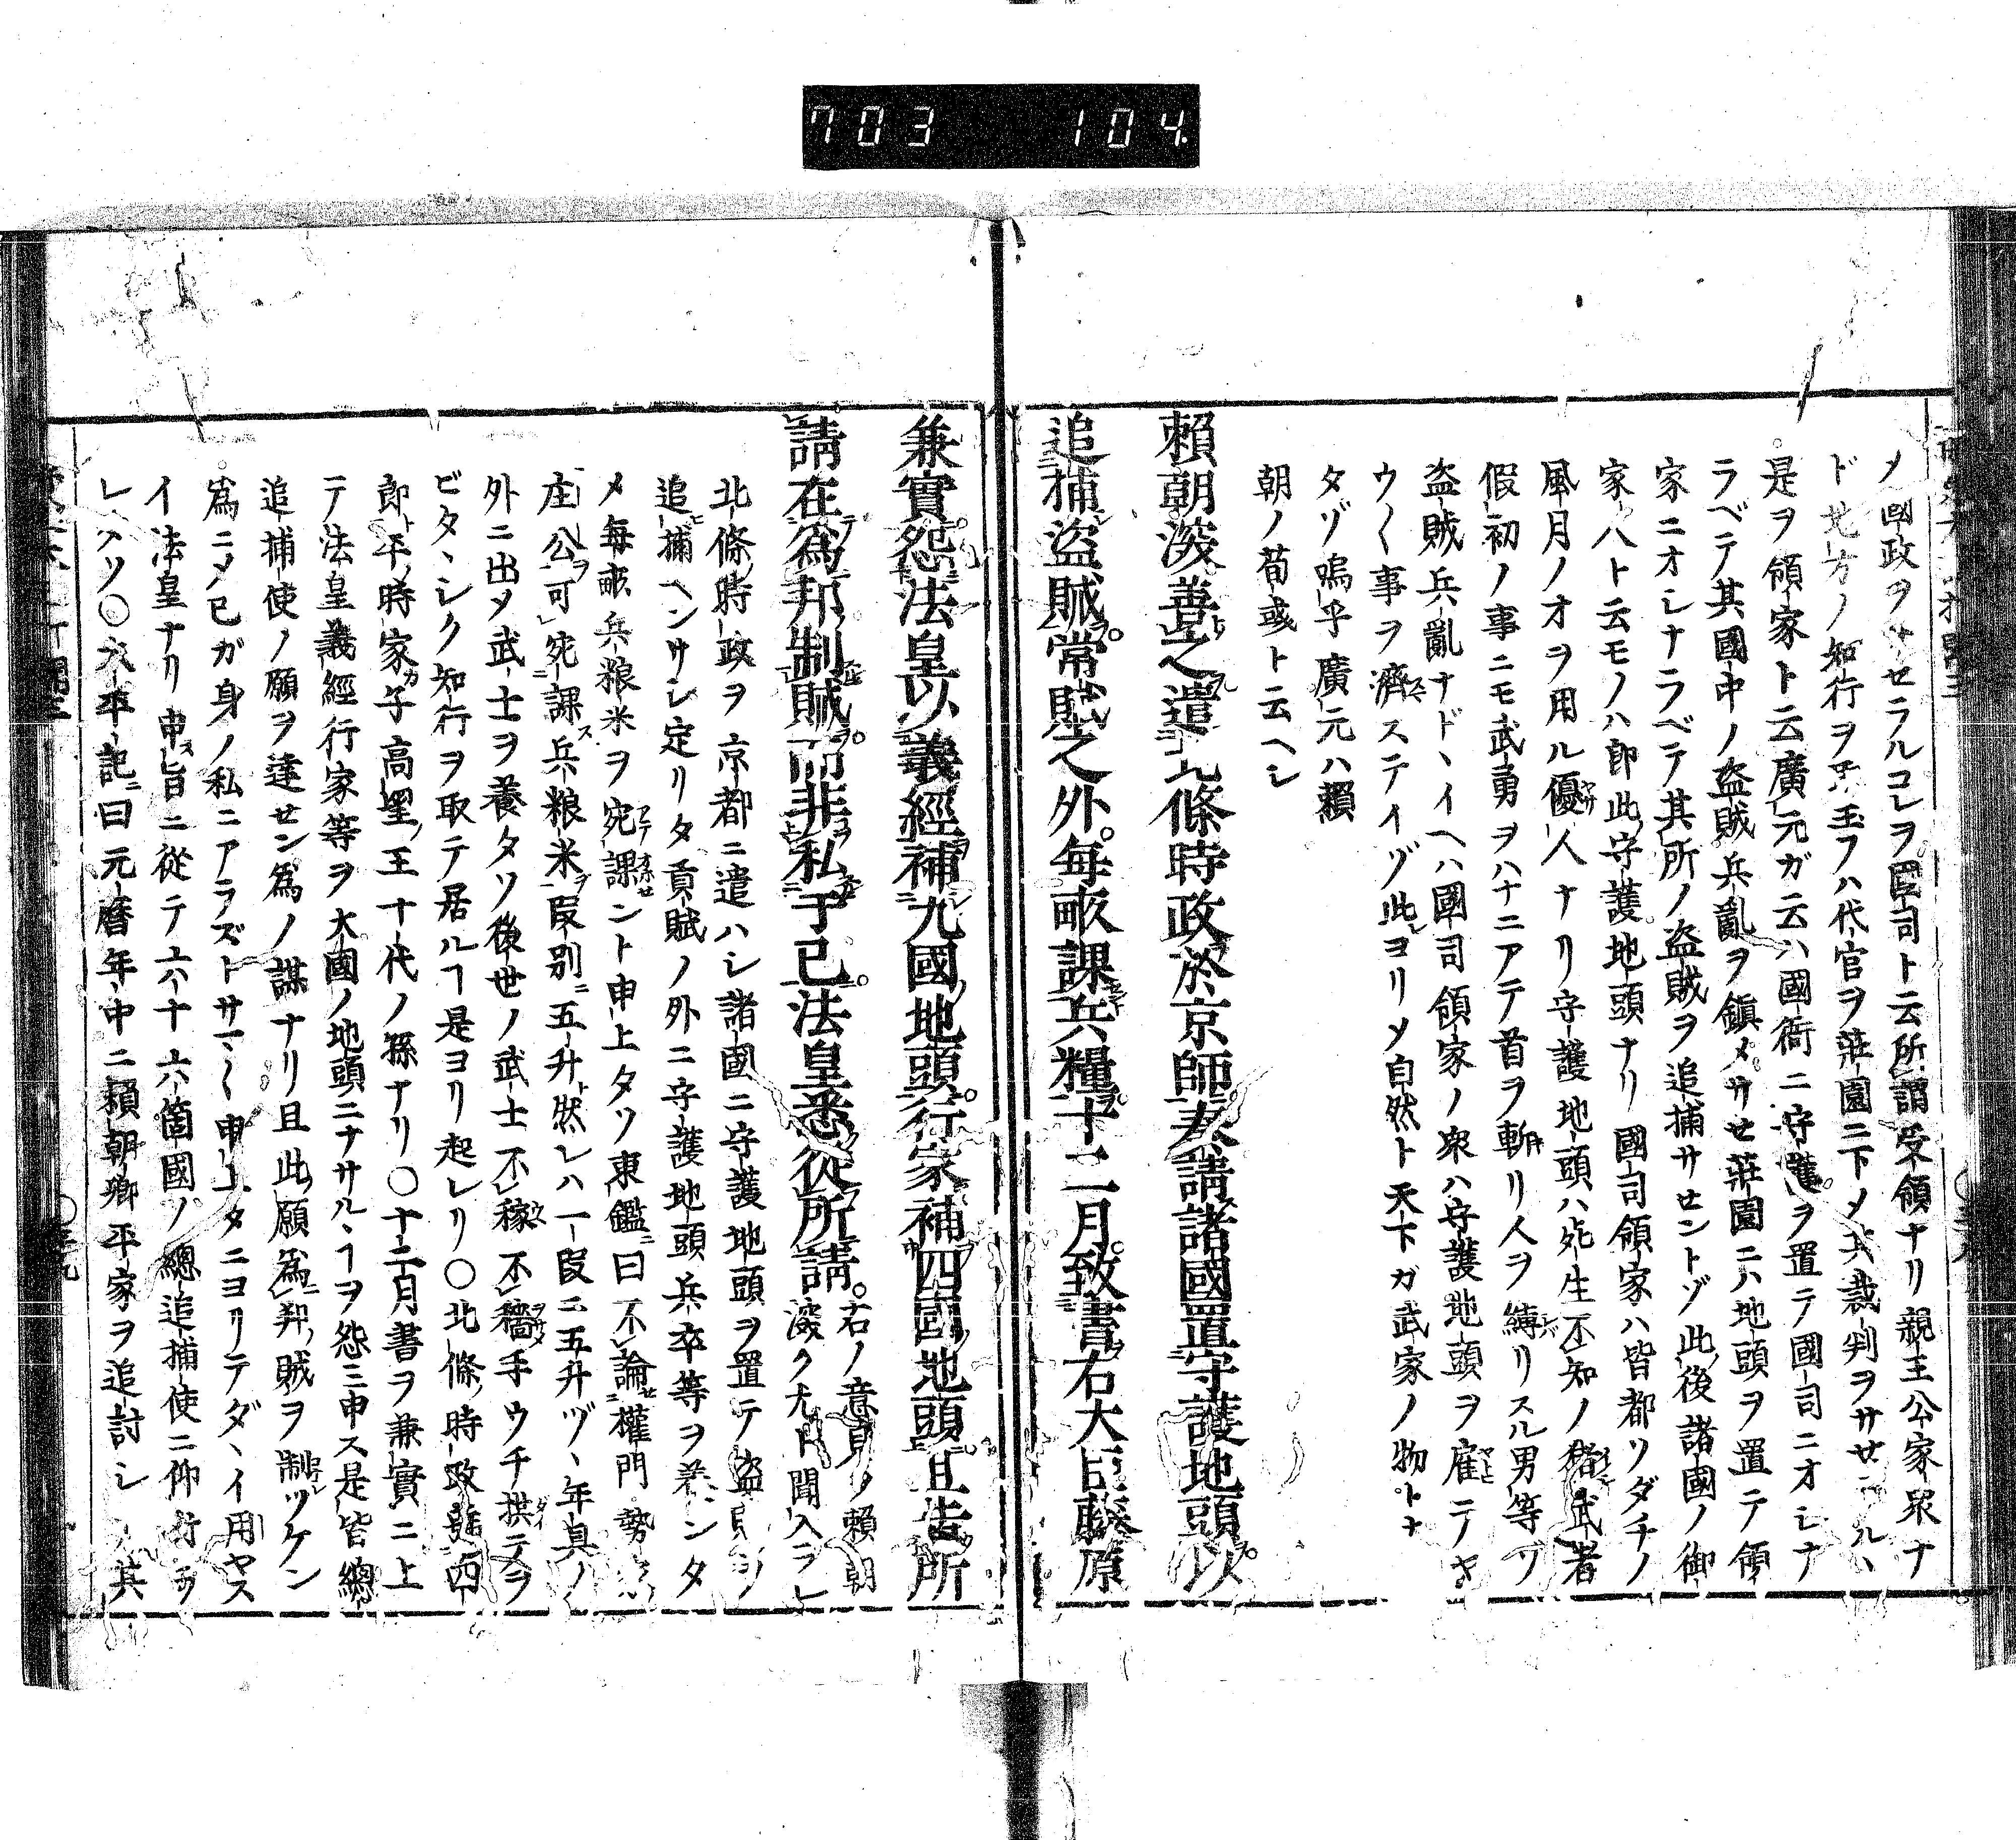 703 104
メ國政ヲサセラルコレヲ國司ト云所謂受領ナリ親王公家眾ナ
ド地方ノ知行ヲ玉フハ代官ヲ莊園ニ下メ其裁判ヲサセルハ
是ヲ領家ト云廣元ガ云ハ國衙ニ守護ヲ置テ國司ニオシナ
ラベテ其國中ノ盗賊兵亂ヲ鎭メサセ莊園ニハ地頭ヲ置テ領
家ニオシナラベテ其所ノ盗賊ヲ追捕サセントゾ此後諸國ノ御
家人ト云モノハ即此守護地頭ナリ國司領家ハ皆都ソダチノ
風月ノオヲ用ル優人ナリ守護地頭ハ死生不知ノ武者
假初ノ事ニモ武勇ヲハナニアテ首ヲ斬リ人ヲ縛リスル男等ゾ
盗賊兵亂ナド、イヘハ國司領家ノ眾ハ守護地頭ヲ雇テヤ
ウ〱事ヲ濟ステイゾ此ヨリメ自然ト天下ガ武家ノ物トナ
タゾ嗚乎廣元ハ賴
朝ノ荀彧ト云ヘシ
賴朝深善之遣北條時政於京師奏請諸國置守護地頭以
追捕盗賊常賦之外每畝課兵糧十二月致書右大臣藤原
兼實怨法皇以義經補九國地頭行家補四國地頭且告所
請在爲邦制賊而非私于己法皇悉從所請右ノ意見ノ賴朝
深ク尤ト聞入ラレ
北條時政ヲ京都ニ遣ハシ諸國ニ守護地頭ヲ置テ盗
追捕ヘンサレ定リタ貢賦ノ外ニ守護地頭兵卒等ヲ養ンタ
メ每畝兵粮米ヲ宛課ント申上タソ東鑑曰不論權門勢
庄公可宛課兵粮米段別五升然レハ一段ニ五升ヅヽ年具ノ
外ニ出メ武士ヲ養タソ後世ノ武士不稼不穡手ウチ拱テヲ
ビタヽシク知行ヲ取テ居ルヿ是ヨリ起レリ〇北條時政四
郎平時家カ子高望王十代ノ孫ナリ〇十二月書ヲ兼實ニ上
テ法皇義經行家等ヲ大國ノ地頭ニナサルヽヿヲ怨ミ申ス是皆總
追捕使ノ願ヲ達セン爲ノ謀ナリ且此願爲邦賊ヲ制ツケン
爲ニメ己ガ身ノ私ニアラズトサマ〱申上タニヨリテダヽイ用ヤス
イ法皇ナリ申旨ニ從テ六十六箇國ノ總追捕使ニ仰付ラ
レヘソ〇太平記曰元曆年中ニ賴朝卿平家ヲ追討シ其